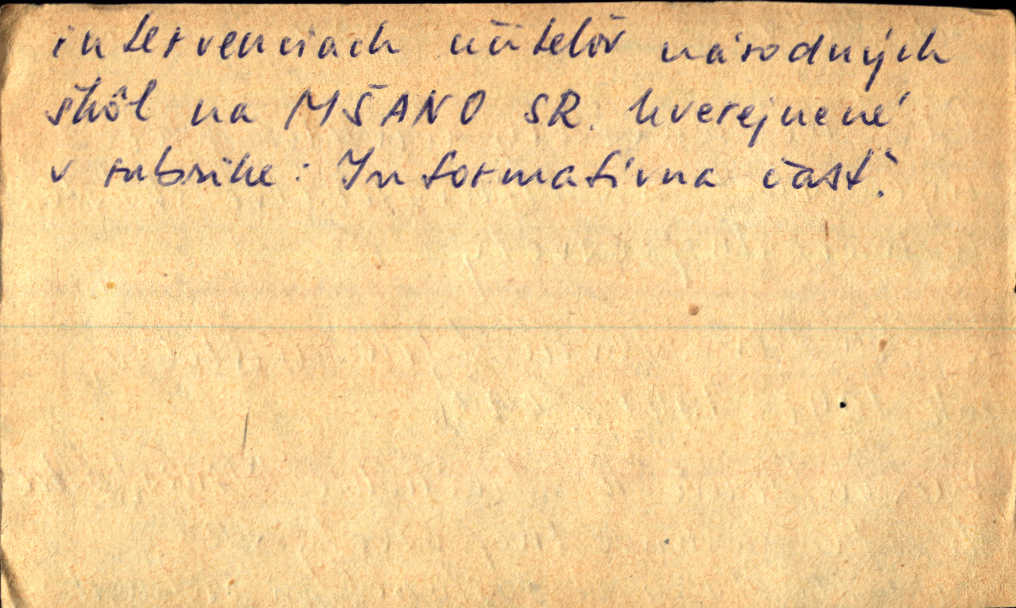 intervenciach učitelov národných
škôl na MŠANO SR. Uverejnené
v rubrike: Informatívna časť.